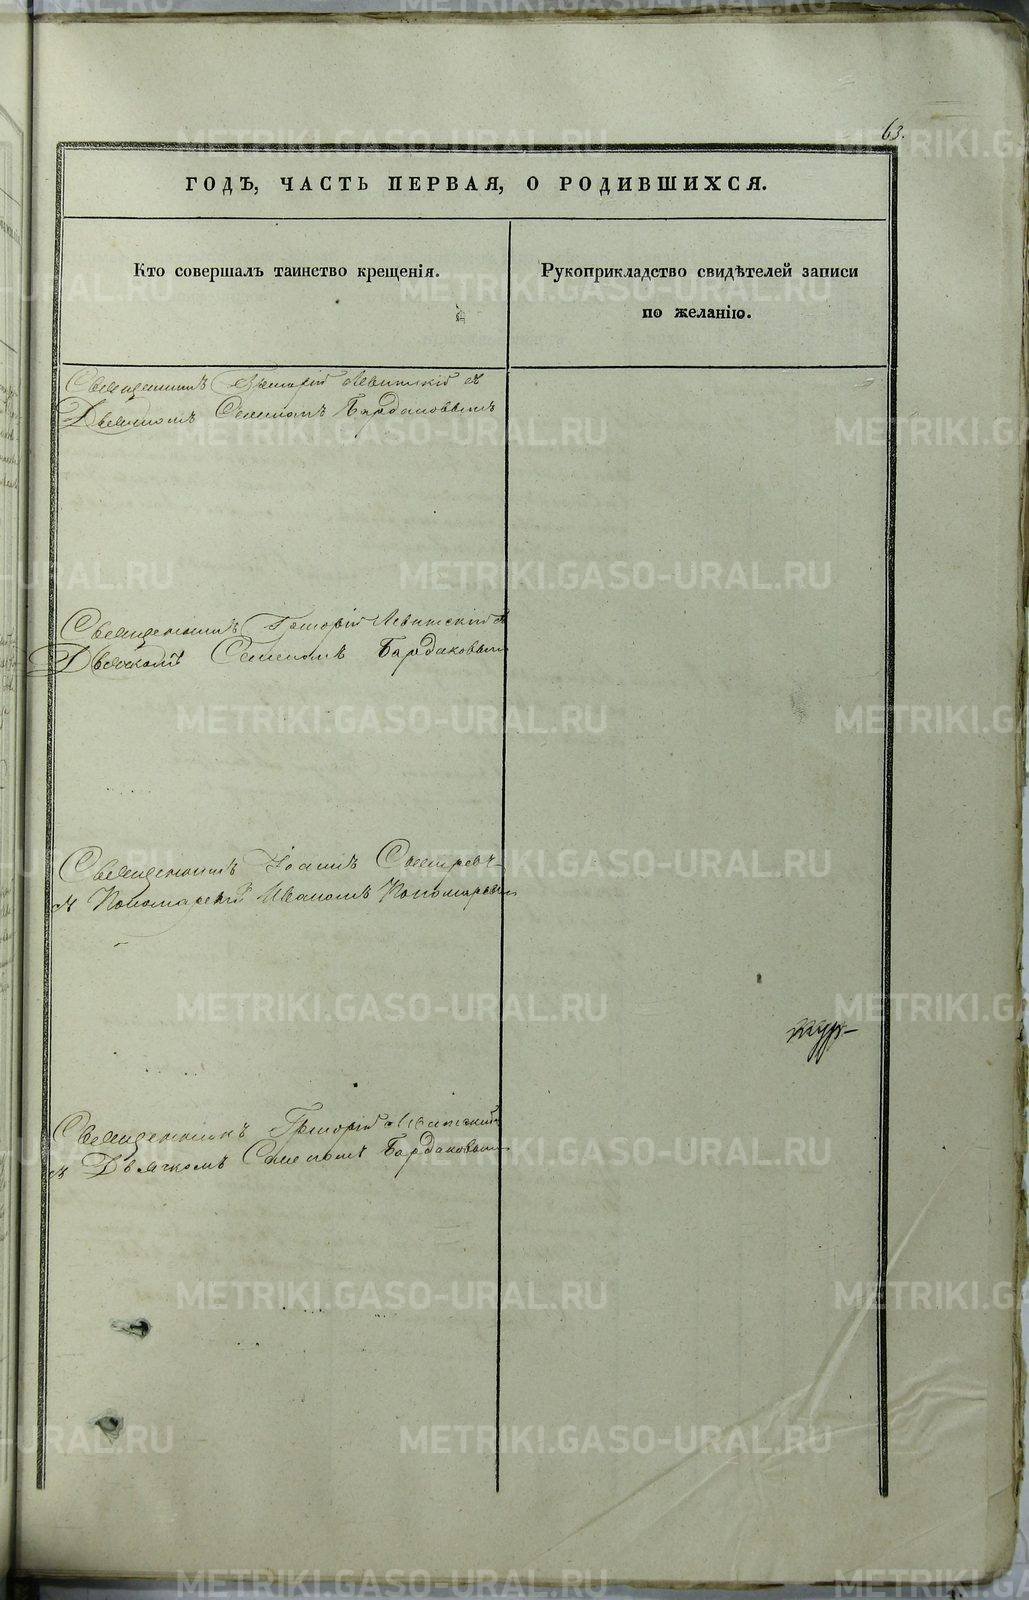 63.
ГОДЪ, ЧАСТЬ ПЕРВАЯ, О РОДИВШИХСЯ.
Кто совершалъ таинство крещенія.
Рукоприкладство свидѣтелей записи
по желанію.
Священникъ Григорій Левитскій съ
Дьячкомъ Семеномъ Бардаковымъ
Священникъ Григорій Левитскій съ
Дьячкомъ Семеномъ Бардаковымъ
Священникъ Іоаннъ
Иваномъ Пономаревым
Священникъ Григорій Левитскій
съ Дьячкомъ Семеномъ Бардаковым
METRIKI.GASO-URAL.RU